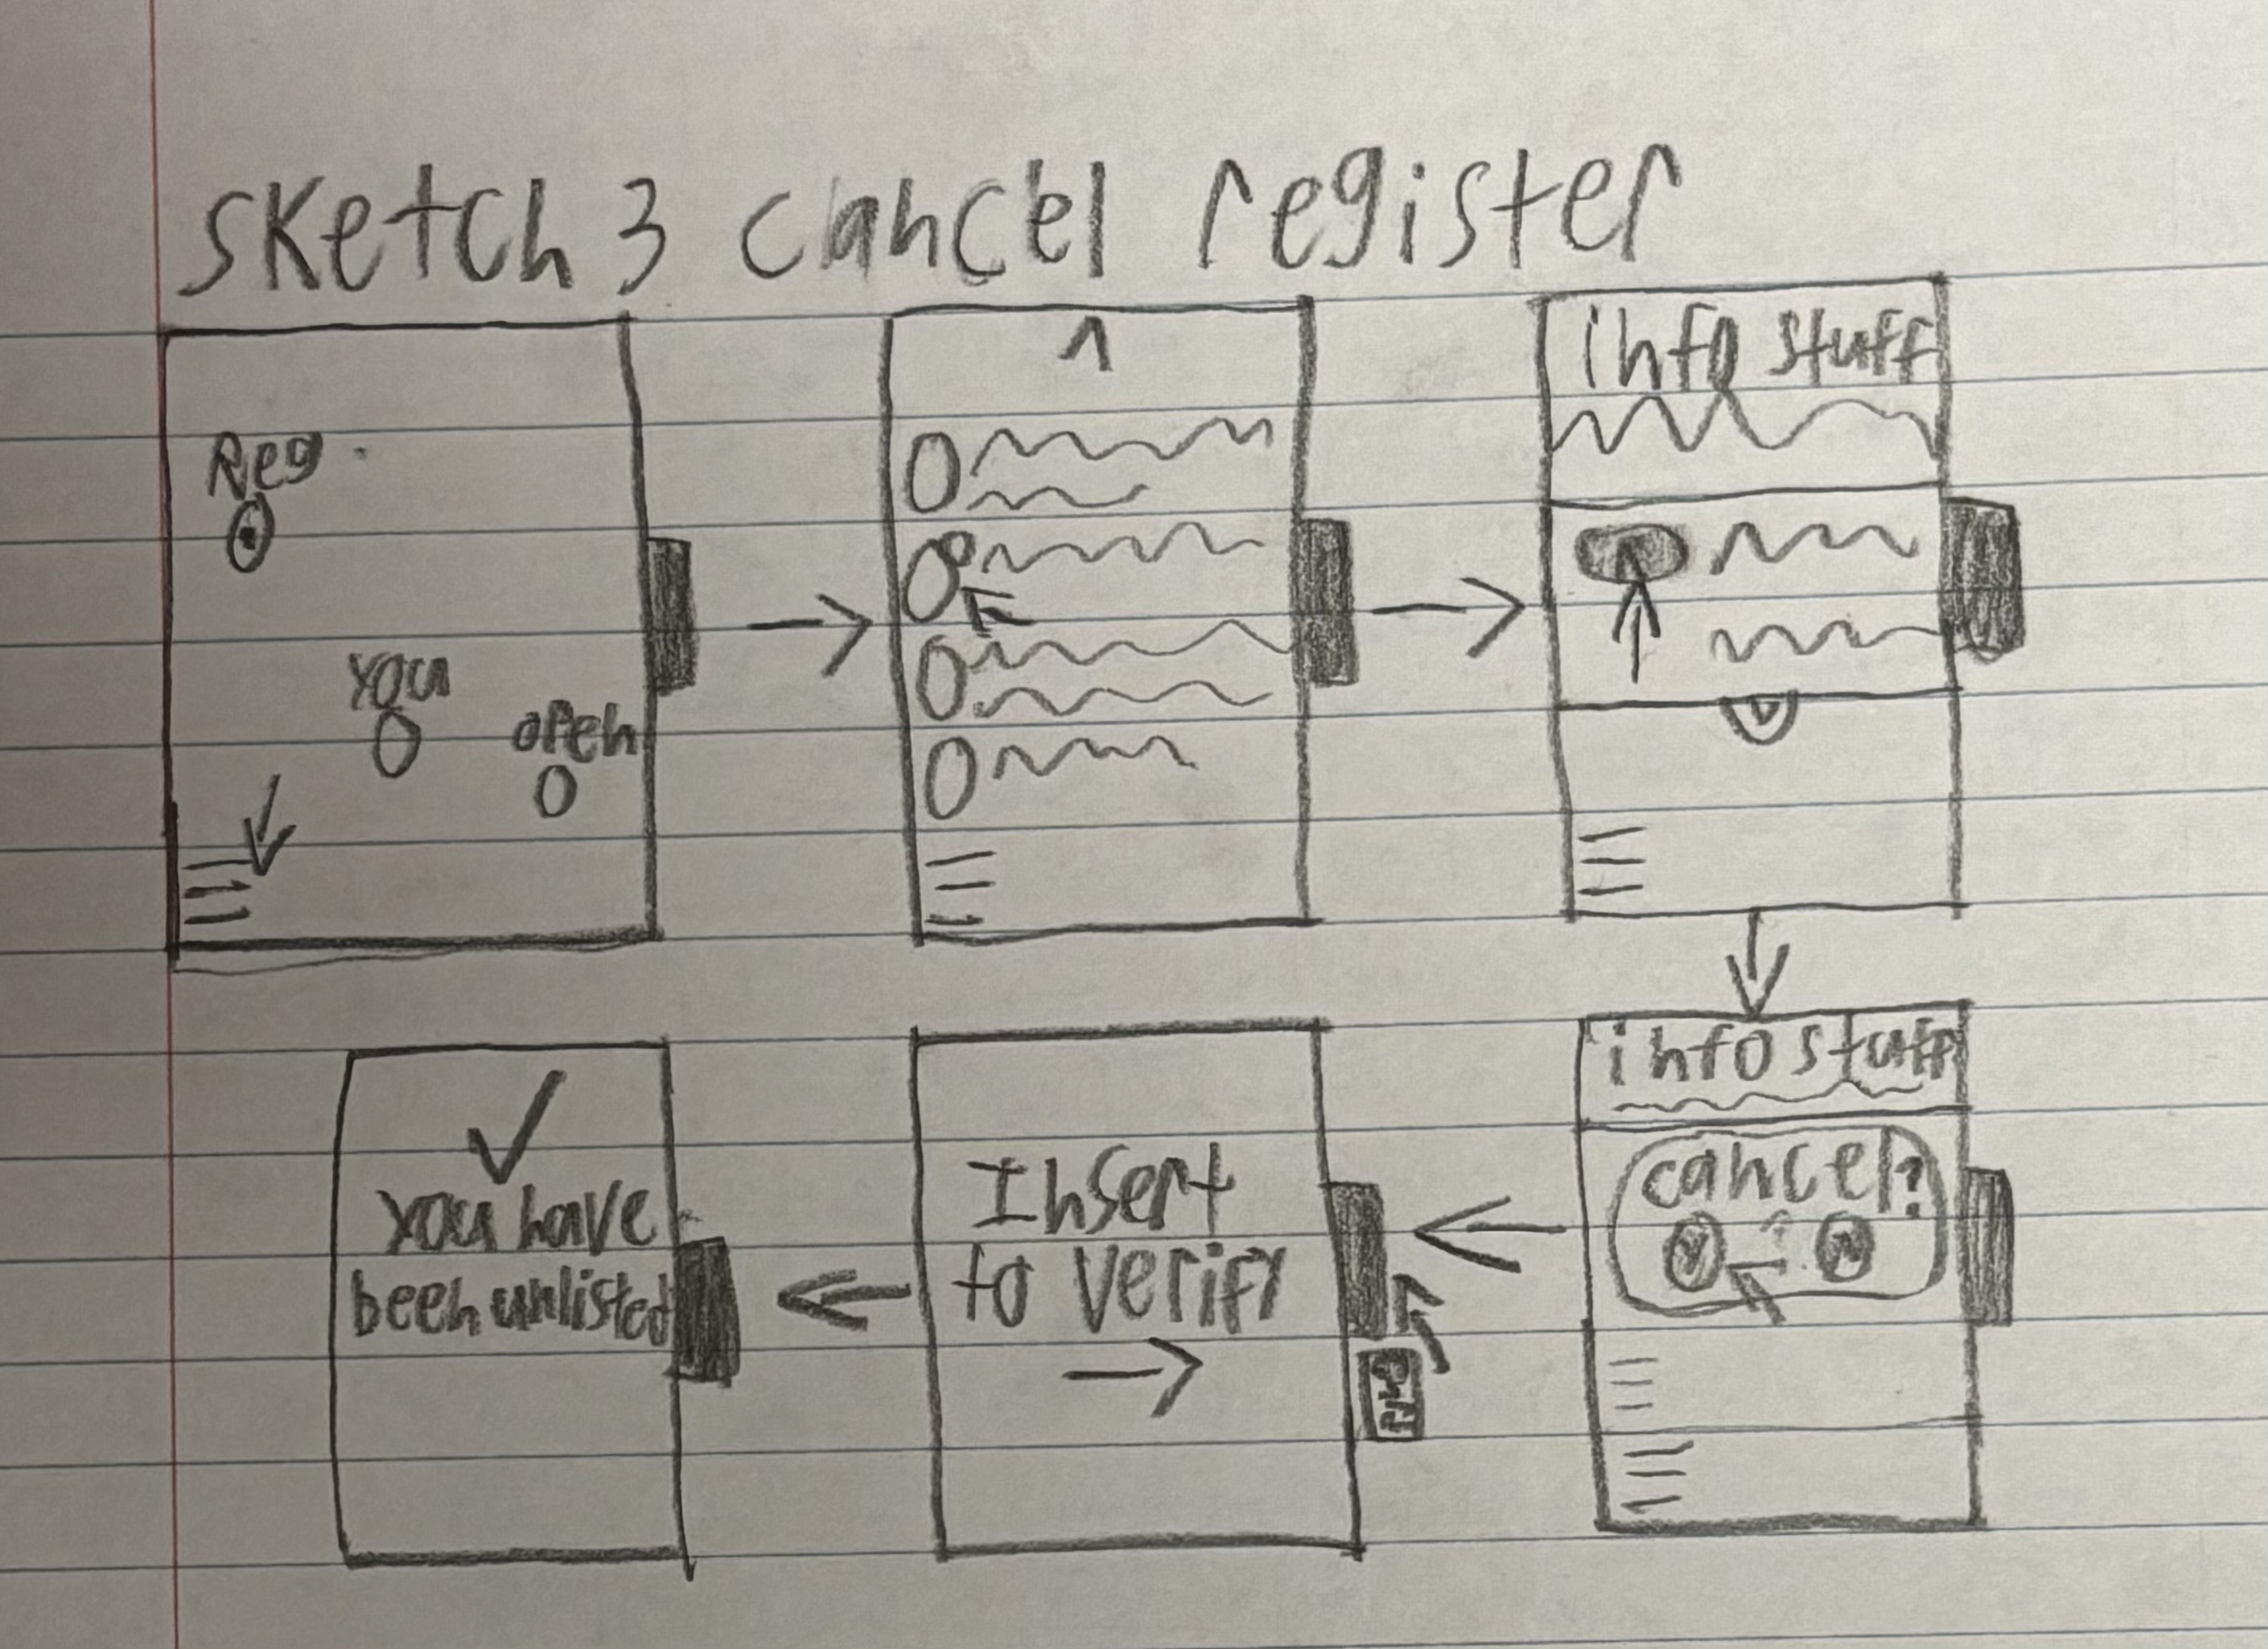 sketch 3 cancel register
Reg
You
open
info stuff
info stuff
cancel?
Y N
Insert
to verify
✓
You have
been unlisted